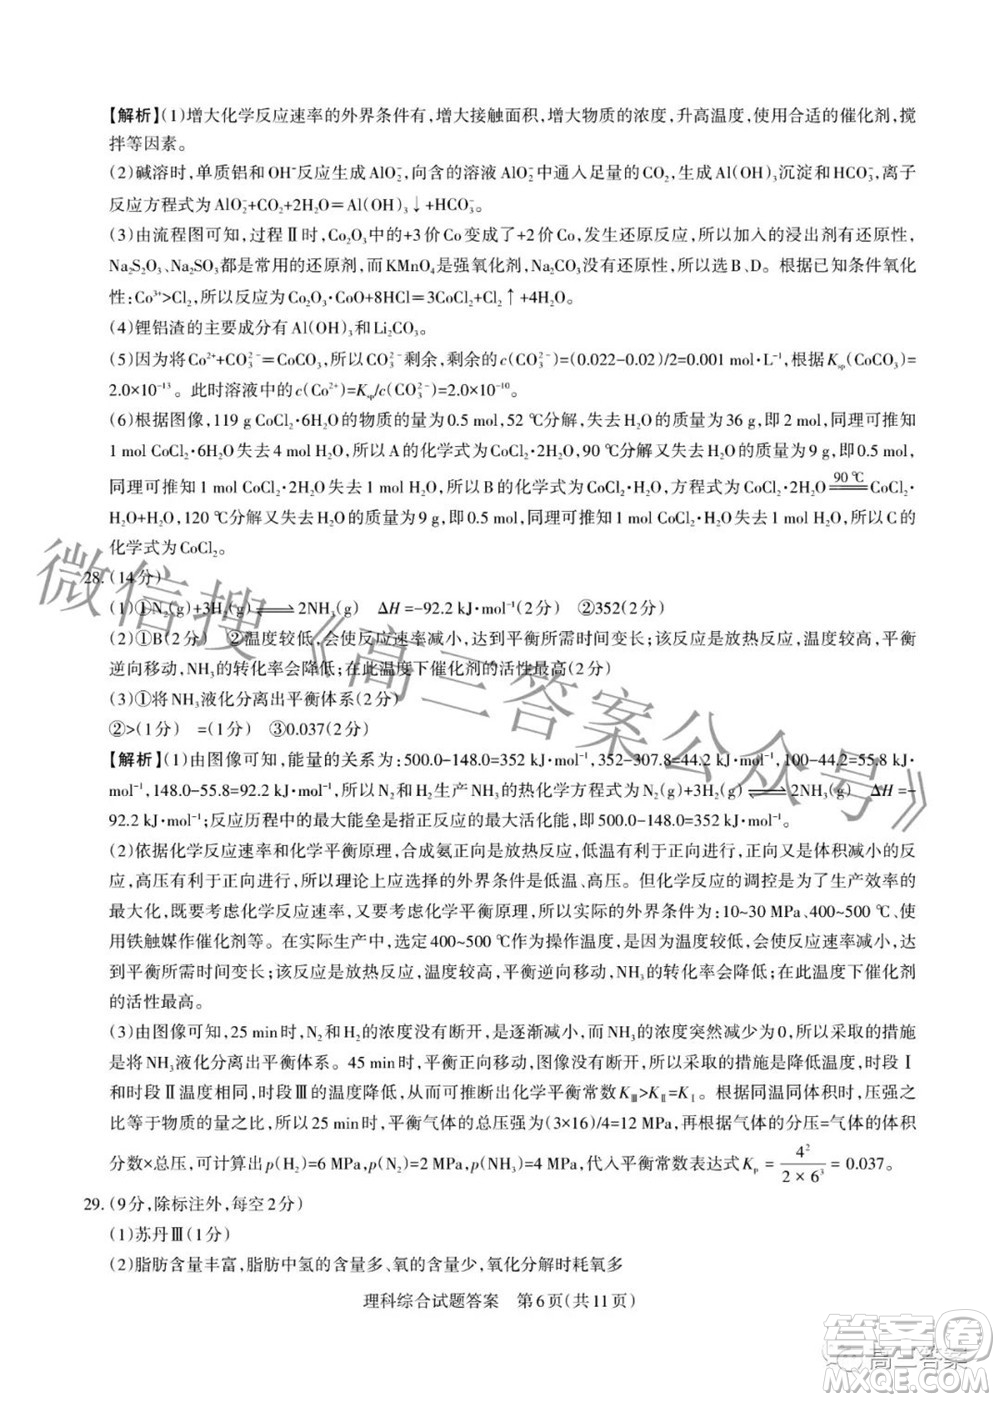 【解析】(1)增大化学反应速率的外界条件有,增大接触面积,增大物质的浓度,升高温度,使用合适的催化剂,搅
拌等因素。
(2)碱溶时,单质铝和OH⁻反应生成AlO₂⁻,向含的溶液AlO₂⁻中通入足量的CO₂,生成Al(OH)₃沉淀和HCO₃⁻,离子
反应方程式为AlO₂⁻+CO₂+2H₂O=Al(OH)₃↓+HCO₃⁻。
(3)由流程图可知,过程Ⅱ时,Co₂O₃中的+3价Co变成了+2价Co,发生还原反应,所以加入的浸出剂有还原性,
Na₂S₂O₃、Na₂SO₃都是常用的还原剂,而KMnO₄是强氧化剂,Na₂CO₃无还原性,所以选B、D。根据已知条件氧化
性:Co³⁺>Cl₂,所以反应为Co₂O₃·CoO+8HCl=3CoCl₂+Cl₂↑+4H₂O。
(4)锂铝渣的主要成分有Al(OH)₃和Li₂CO₃。
(5)因为将Co²⁺+CO₃²⁻=CoCO₃,所以CO₃²⁻剩余,剩余的c(CO₃²⁻)=(0.022-0.02)/2=0.001 mol·L⁻¹,根据Ksp(CoCO₃)=
2.0×10⁻¹³。此时溶液中的c(Co²⁺)=Ksp/c(CO₃²⁻)=2.0×10⁻¹⁰。
(6)根据图像,119 g CoCl₂·6H₂O的物质的量为0.5 mol,52 ℃分解,失去H₂O的质量为36 g,即2 mol,同理可推知
1 mol CoCl₂·6H₂O失去4 mol H₂O,所以A的化学式为CoCl₂·2H₂O,90 ℃分解又失去H₂O的质量为9 g,即0.5 mol,
同理可推知1 mol CoCl₂·2H₂O失去1 mol H₂O,所以B的化学式为CoCl₂·H₂O,方程式为CoCl₂·2H₂O 90 ℃ = CoCl₂·
H₂O+H₂O,120 ℃分解又失去H₂O的质量为9 g,即0.5 mol,同理可推知1 mol CoCl₂·H₂O失去1 mol H₂O,所以C的
化学式为CoCl₂。
28.(14分)
(1)①N₂(g)+3H₂(g)⇌2NH₃(g) ΔH=-92.2 kJ·mol⁻¹(2分) ②352(2分)
(2)①B(2分) ②温度较低,会使反应速率减小,达到平衡所需时间变长;该反应是放热反应,温度较高,平衡
逆向移动,NH₃的转化率会降低;在此温度下催化剂的活性最高(2分)
(3)①将NH₃液化分离出平衡体系(2分)
②>(1分) =(1分) ③0.037(2分)
【解析】(1)由图像可知,能量的关系为:500.0-148.0=352 kJ·mol⁻¹,352-307.8=44.2 kJ·mol⁻¹,100-44.2=55.8 kJ·
mol⁻¹,148.0-55.8=92.2 kJ·mol⁻¹,所以N₂和H₂生产NH₃的热化学方程式为N₂(g)+3H₂(g)⇌2NH₃(g) ΔH=-
92.2 kJ·mol⁻¹;反应历程中的最大能垒是指正反应的最大活化能,即500.0-148.0=352 kJ·mol⁻¹。
(2)依据化学反应速率和化学平衡原理,合成氨正向是放热反应,低温有利于正向进行,正向又是体积减小的反
应,高压有利于正向进行,所以理论上应选择的外界条件是低温、高压。但化学反应的调控是为了生产效率的
最大化,既要考虑化学反应速率,又要考虑化学平衡原理,所以实际的外界条件为:10~30 MPa、400~500 ℃、使
用铁触媒作催化剂等。在实际生产中,选定400~500 ℃作为操作温度,是因为温度较低,会使反应速率减小,达
到平衡所需时间变长;该反应是放热反应,温度较高,平衡逆向移动,NH₃的转化率会降低;在此温度下催化剂
的活性最高。
(3)由图像可知,25 min时,N₂和H₂的浓度没有断开,是逐渐减小,而NH₃的浓度突然减少为0,所以采取的措施
是将NH₃液化分离出平衡体系。45 min时,平衡正向移动,图像没有断开,所以采取的措施是降低温度,时段Ⅰ
和时段Ⅱ温度相同,时段Ⅲ的温度降低,从而可推断出化学平衡常数KⅢ>KⅡ=KⅠ。根据同温同体积时,压强之比
等于物质的量之比,所以25 min时,平衡气体的总压强为(3×16)/4=12 MPa,再根据气体的分压=气体的体积
分数×总压,可计算出p(H₂)=6 MPa,p(N₂)=2 MPa,p(NH₃)=4 MPa,代入平衡常数表达式Kp = 4²/(2 × 6³) = 0.037。
29.(9分,除标注外,每空2分)
(1)苏丹Ⅲ(1分)
(2)脂肪含量丰富,脂肪中氢的含量多、氧的含量少,氧化分解时耗氧多
理科综合试题答案 第6页(共11页)
微信搜《高三答案公众号》
答案卷
高三答案
MXQE.COM